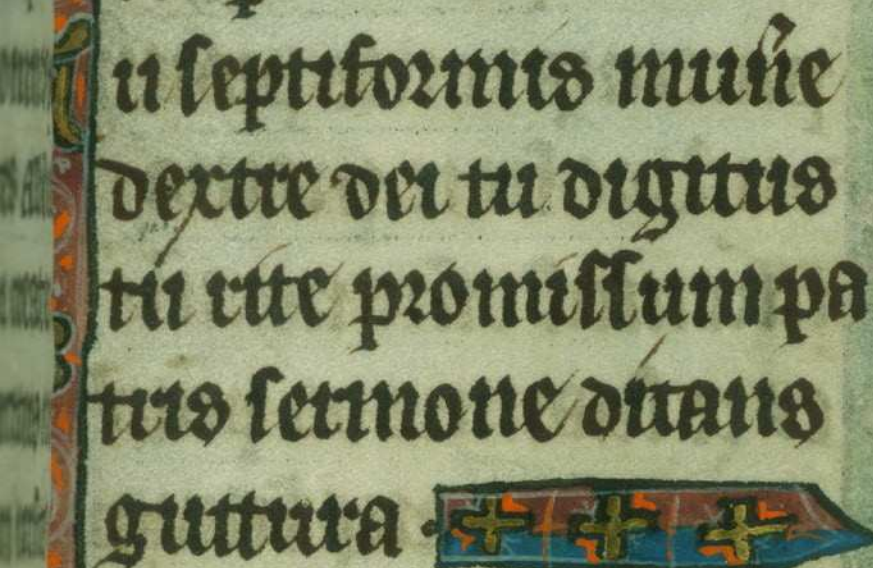 Tu septiformis mun̄e
dextre dei tu digitus
tu rite promissum pa
tris sermone ditans
guttura.